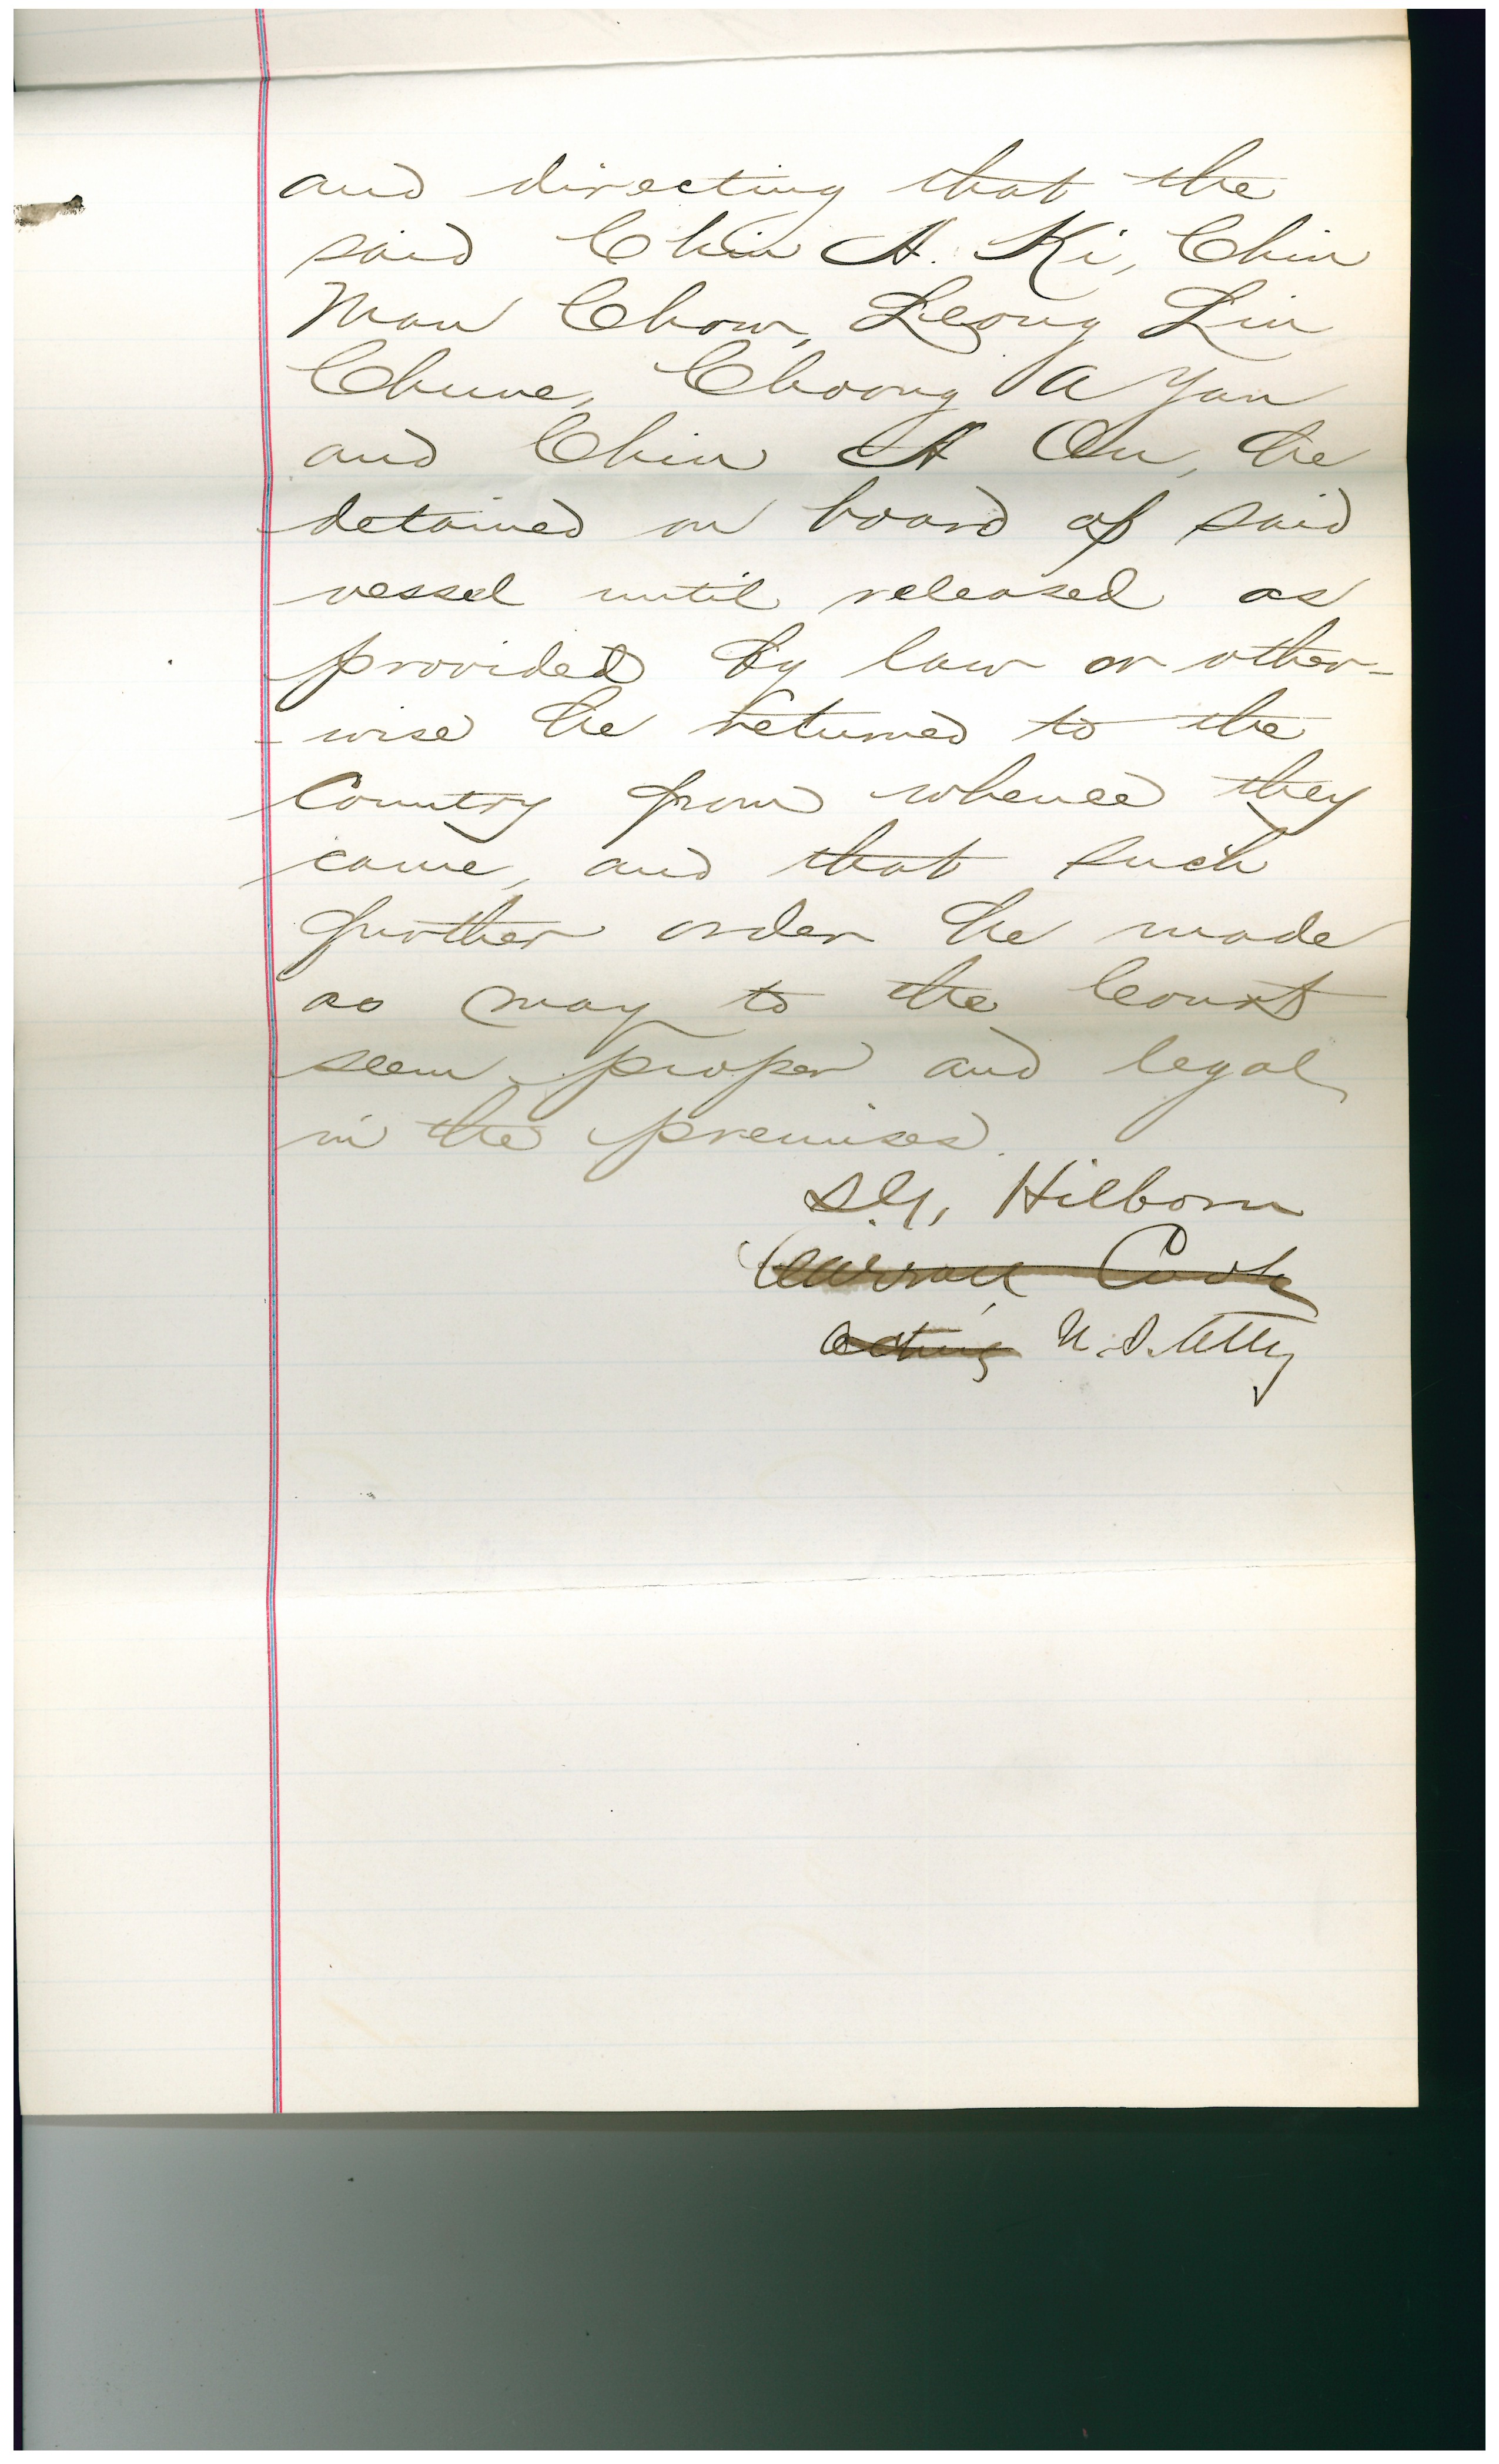 and directing that the
said Chin A. Ki, Chin
Man Chow, Leong Lin
Chune, Choong A Yan
and Chin A On, be
detained on board of said
vessel until released as
provided by law or other-
-wise be returned to the
Country from whence they
came, and that such
further order be made
as may to the Court
seem proper and legal
in the premises.
S.G. Hilborn
Carroll Cook
acting U.S. Atty